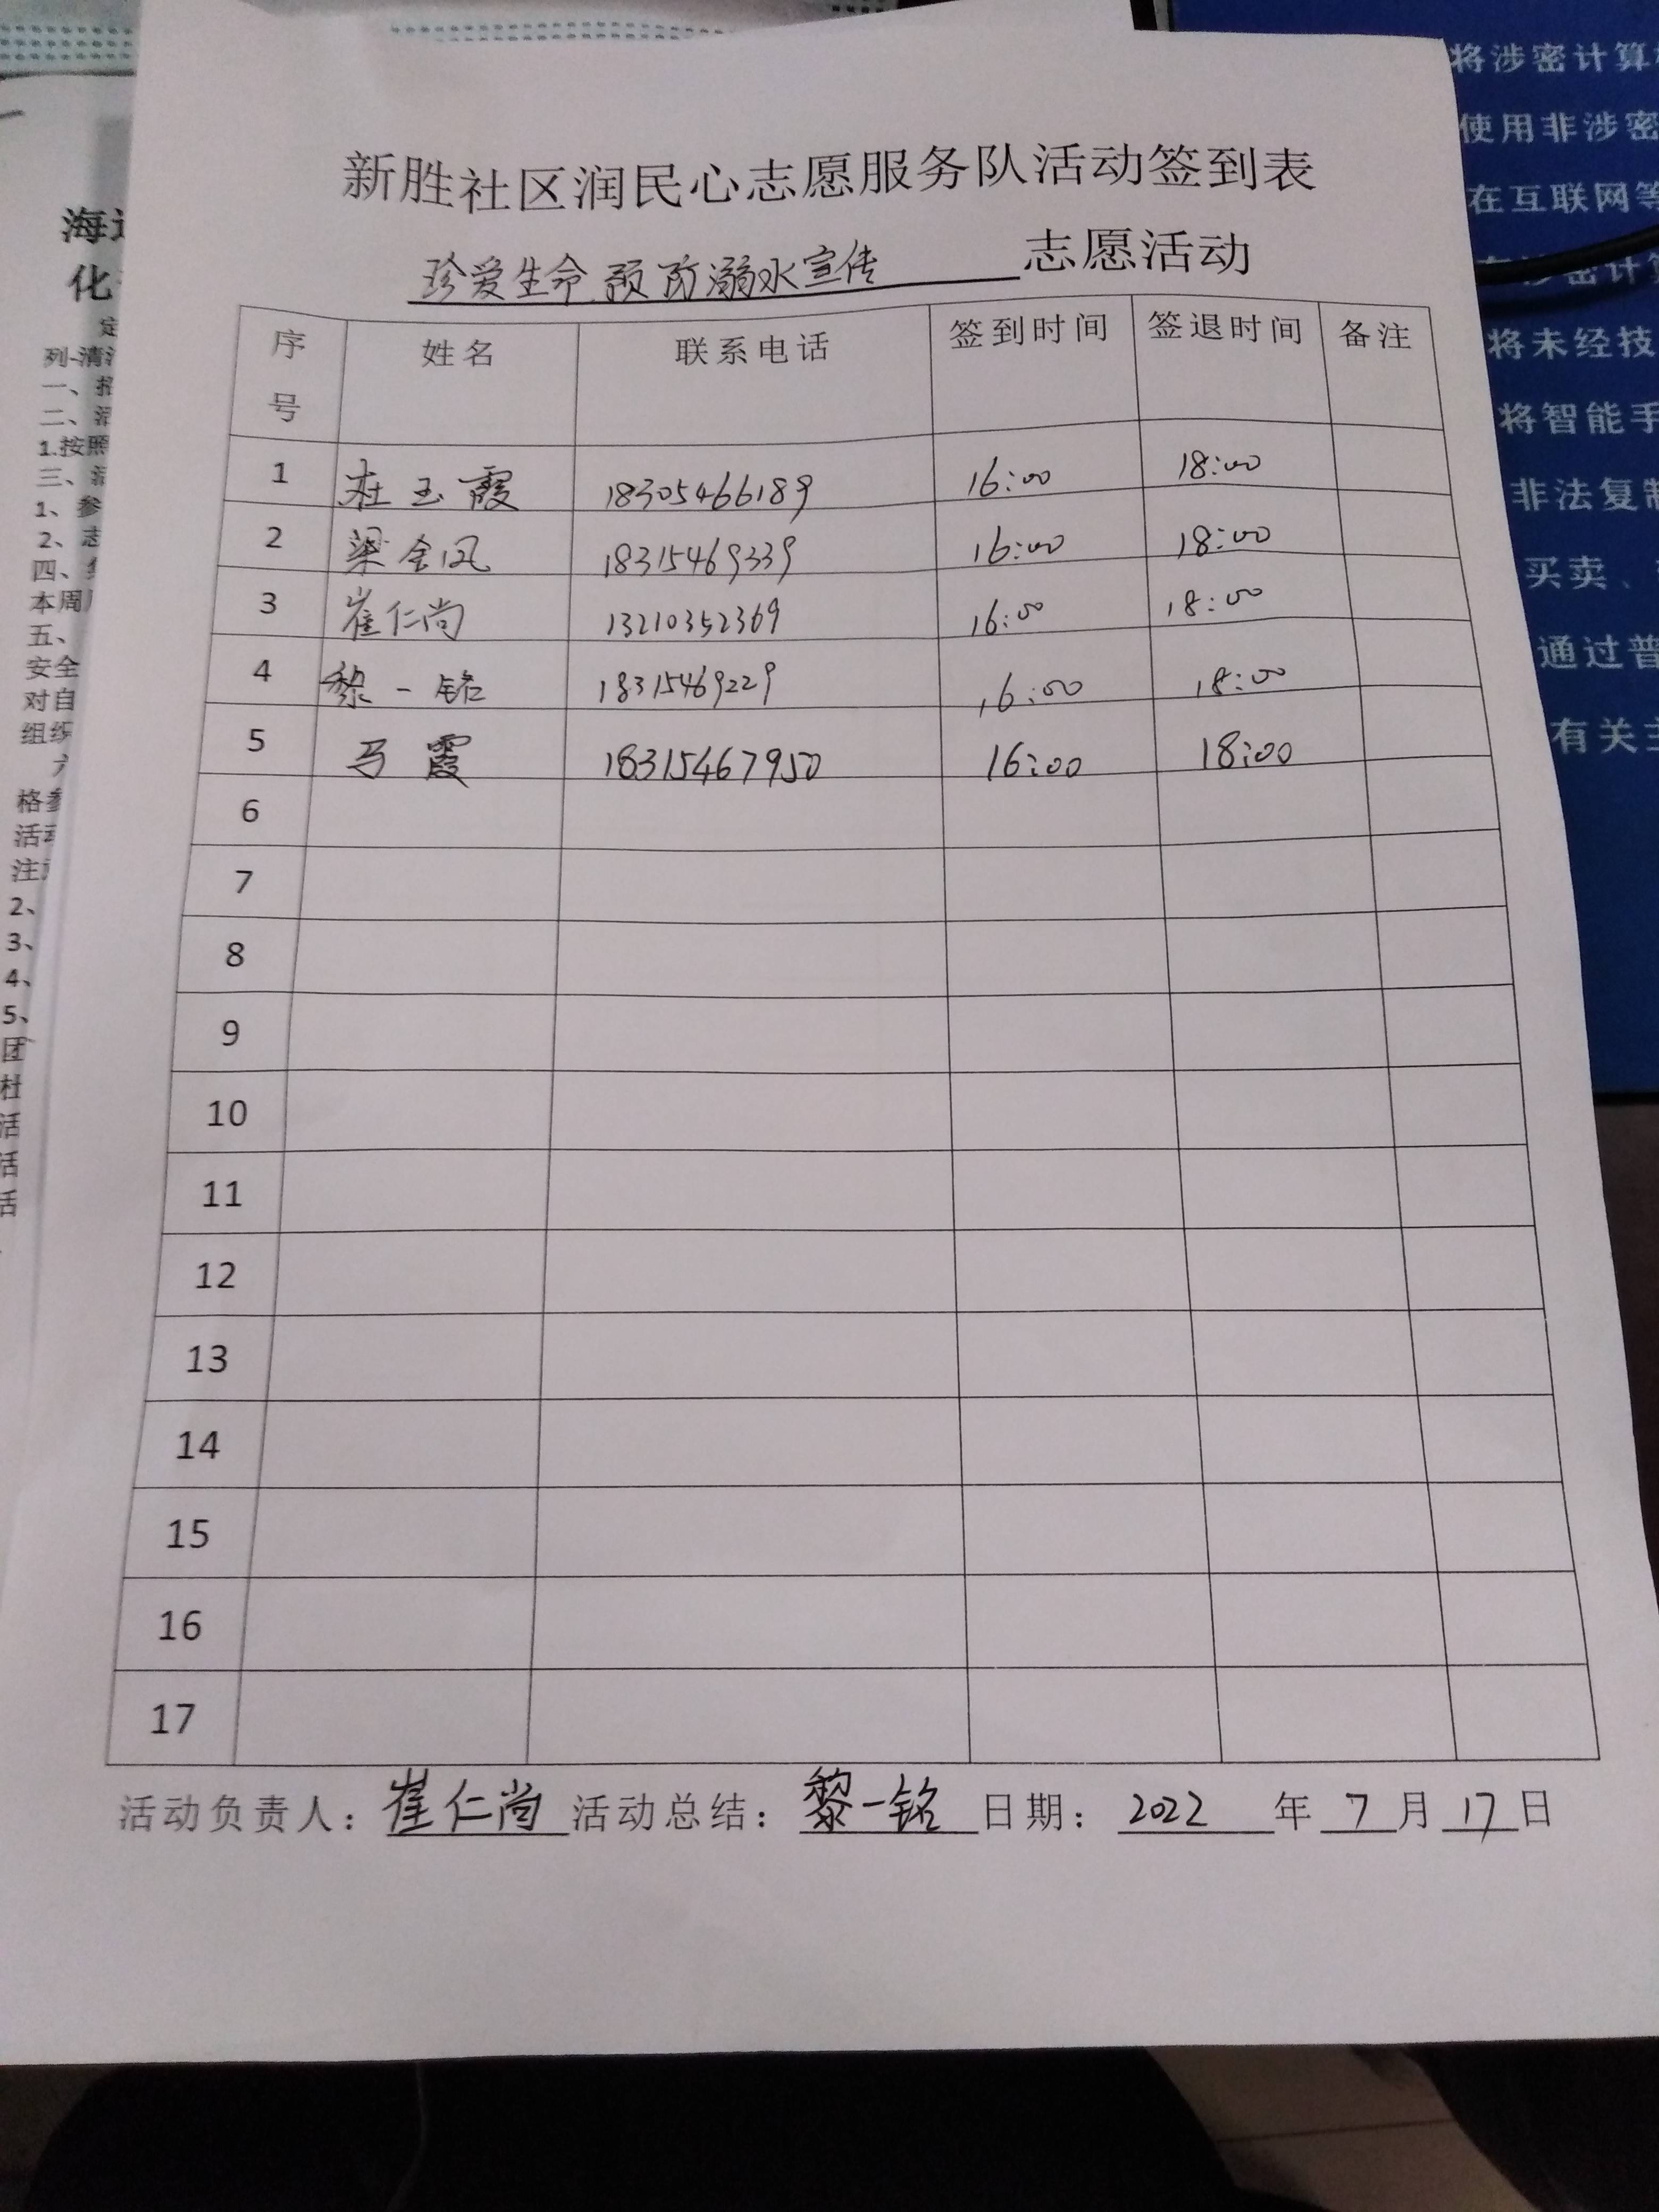 新胜社区润民心志愿服务队活动签到表
珍爱生命 预防溺水宣传 志愿活动
序号 姓名 联系电话 签到时间 签退时间 备注
1 杜玉霞 18305466189 16:00 18:00
2 梁金凤 18315469339 16:00 18:00
3 崔仁尚 13210352369 16:00 18:00
4 黎一铭 18315469229 16:00 18:00
5 马霞 18315467950 16:00 18:00
6
7
8
9
10
11
12
13
14
15
16
17
活动负责人：崔仁尚 活动总结：黎一铭 日期：2022 年 7 月 17 日
海
化
列-清
一、
二、
1.按照
三、
1、参
2、志
四、
本周
五、
安全
对自
组织
格参
活动
注
2、
3、
4、
5、
团
杜
活
活
活
将涉密计算
使用非涉密
在互联网等
在涉密计算
将未经技
将智能手
非法复制
买卖、
通过普
有关主